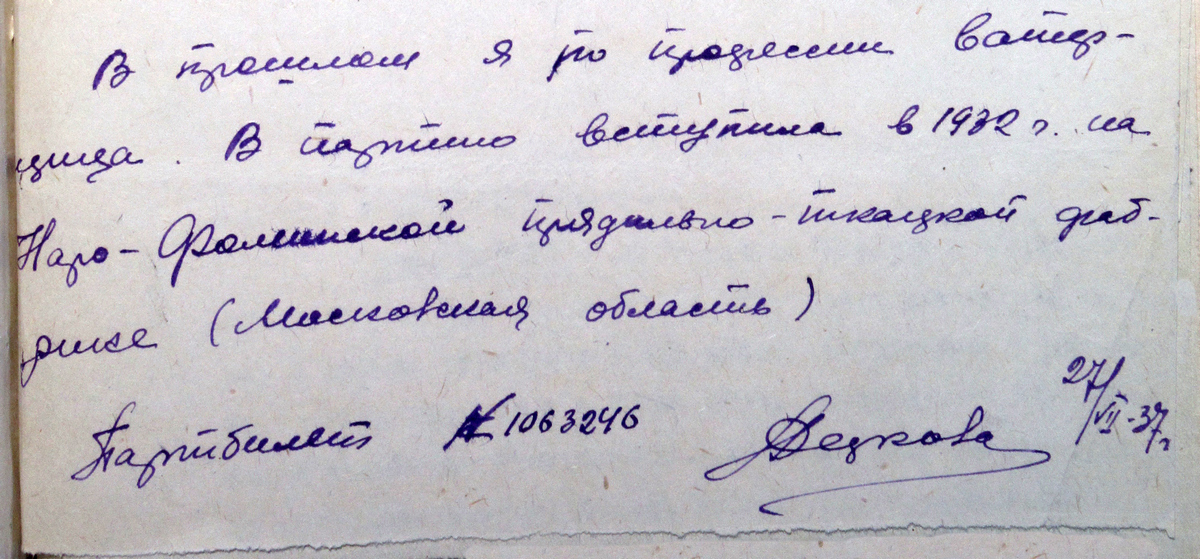 В прошлом я по профессии ватер-
щица. В партию вступила в 1932 г. на
Наро-Фоминской прядильно-ткацкой фаб-
рике (Московская область)
Партбилет № 1063246
27/VII-37 г.